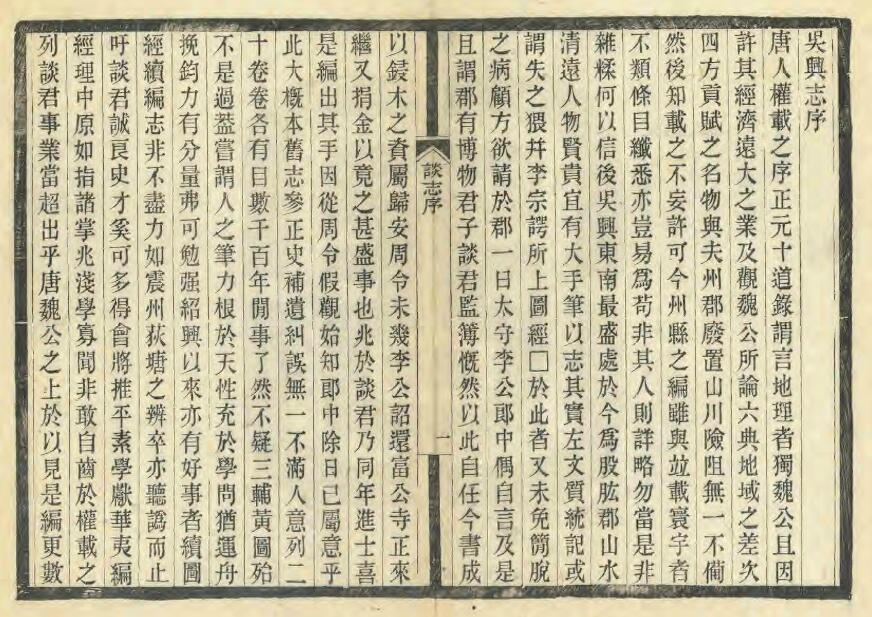 吳興志序
唐人權載之序正元十道錄謂言地理者獨魏公且因
許其經濟遠大之業及觀魏公所論六典地域之差次
四方貢賦之名物與夫州郡廢置山川險阻無一不僃
然後知載之不妄許可今州縣之編雖與竝載寰宇者
不類條目纖悉亦豈易爲苟非其人則詳略勿當是非
雜糅何以信後吳興東南最盛處於今爲股肱郡山水
清遠人物賢貴宜有大手筆以志其實左文質統記或
謂失之猥幷李宗諤所上圖經□於此者又未免簡脫
之病顧方欲請於郡一日太守李公郎中偶自言及是
且謂郡有博物君子談君監簿慨然以此自任今書成
談志序
一
以鋟木之資屬歸安周令未幾李公詔還富公寺正來
繼又捐金以竟之甚盛事也兆於談君乃同年進士喜
是編出其手因從周令假觀始知郎中除日已屬意乎
此大槪本舊志參正史補遺糾誤無一不滿人意列二
十卷卷各有目數千百年閒事了然不疑三輔黃圖殆
不是過葢嘗謂人之筆力根於天性充於學問猶運舟
挽鈞力有分量弗可勉强紹興以來亦有好事者續圖
經續編志非不盡力如震州荻塘之辨卒亦聽譌而止
吁談君誠良史才奚可多得會將推平素學獻華夷編
經理中原如指諸掌兆淺學寡聞非敢自齒於權載之
列談君事業當超出乎唐魏公之上於以見是編更數